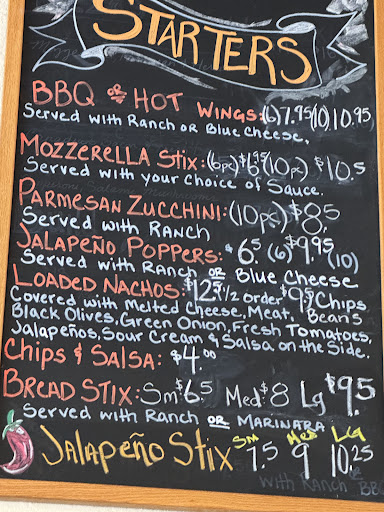 STARTERS
BBQ OR HOT WINGS: (6) 7.95 (10) 10.95
Served with Ranch or Blue Cheese.
Mozzerella Stix: (6pc) $6.95 (10pc) $10.5
Served with your choice of Sauce.
Parmesan Zucchini: (10pc) $8.5
Served with Ranch
Jalapeño Poppers: $6.5 (6) $9.95 (10)
Served with Ranch OR Blue Cheese
Loaded Nachos: $12.5 1/2 order $9.5 Chips
Covered with Melted Cheese, Meat, Beans
Black Olives, Green Onion, Fresh Tomatoes,
Jalapeños, Sour Cream & Salsa on the Side.
Chips & Salsa: $4.00
Bread Stix: Sm $6.5 Med $8 Lg $9.5
Served with Ranch OR Marinara
Jalapeño Stix Sm 7.5 Med 9 LG 10.25
with Ranch